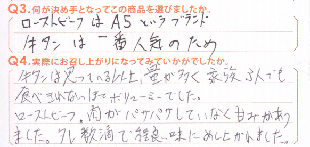 Q3.何が決め手となってこの商品を選びましたか。
ローストビーフはA5というブランド
牛タンは一番人気のため
Q4.実際にお召し上がりになってみていかがでしたか。
牛タンは思っている以上、量が多く家族3人でも
食べきれないほどボリューミーでした。
ローストビーフ、肉がパサパサしていなく甘みがあり
ました。タレ数滴で程良い味にめし上がれました。